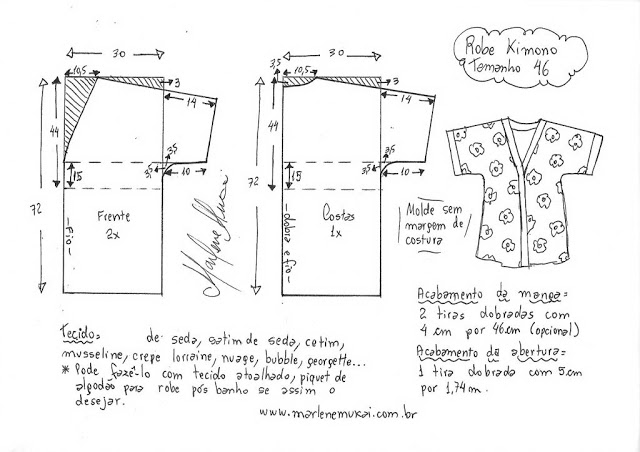 Robe Kimono
Tamanho 46
30
10,5
3
14
44
3,5
3,5
10
15
72
Frente
2x
-Fio-
Marlene Mukai
30
3,5
10,5
3
14
44
3,5
3,5
10
15
72
Costas
1x
-dobra e fio-
Molde sem
margem de
costura
Acabamento da manga=
2 tiras dobradas com
4 cm por 46cm (opcional)
Acabamento da abertura=
1 tira dobrada com 5cm
por 1,74m.
Tecido= de seda, satim de seda, cetim,
musseline, crepe lorraine, nuage, bubble, georgette...
* Pode fazê-lo com tecido atoalhado, piquet de
algodão para robe pós banho se assim o
desejar.
www.marlenemukai.com.br